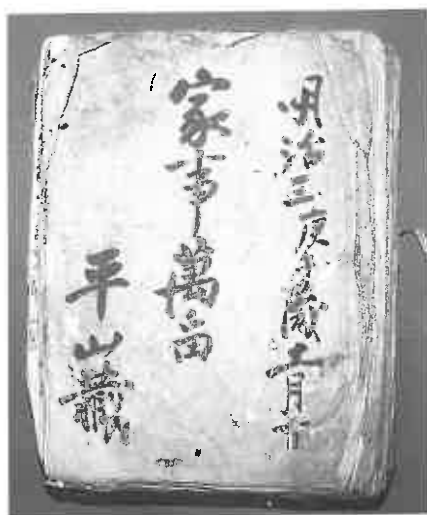 明治三庚午歳月
家事萬
平山